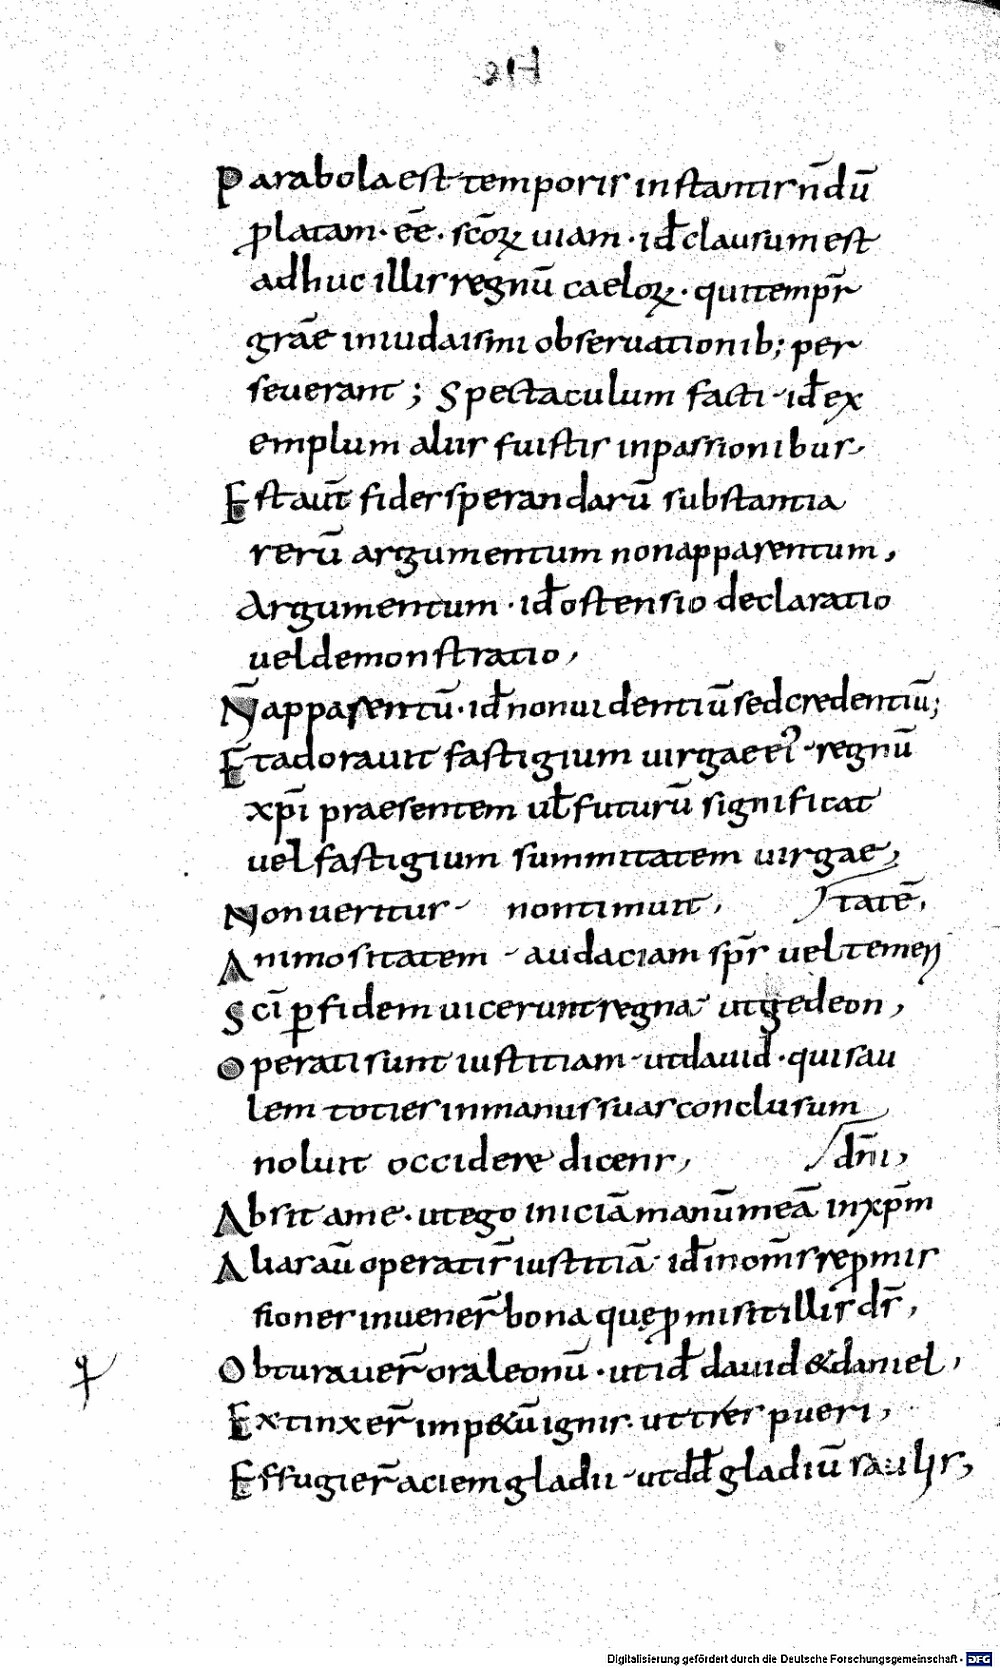 Parabola est temporis instantis ndū
ꝓlatam · eē · scōꝝ uiam · id̄ clausum est
adhuc illis regnū caeloꝝ · qui temprs̄
grāe in iudaismi obseruationib; per
seuerant ; Spectaculum facti · id̄ ex
emplum alus fuistis inpassionibus
Est aūt fides sperandarū substantia
rerū argumentum non apparentum,
Argumentum · id̄ ostensio declaratio
uel demonstratio,
N̄ apparentū · id̄ non uidentiū sed credentiū;
Et adorauit fastigium uirgae ei᾽ · regnū
xp̄i praesentem ul̄ futurū significat
uel fastigium summitatem uirgae,
Non ueritur · non timuit, tatē,
Animositatem · audaciam sp̄s uel temeri
Sc̄i ꝑ fidem uicerunt regna · ut gedeon,
Operati sunt iustitiam · ut dauid · qui sau
lem toties in manus suas conclusum
noluit occidere dicens, dn̄i,
Absit a me · ut ego iniciā manū meā in xp̄m
Alias aū operatis̄ iustitiā · id̄ in om̄s repmis
siones inuener̄ bona quę ꝓmisit illis ds̄,
Obturauer̄ ora leonū · ut id̄ dauid & daniel,
Extinxer̄ imp&ū ignis · ut tres pueri,
Effugier̄ aciem gladii · ut dd̄ gladiū saulis,
Digitalisierung gefördert durch die Deutsche Forschungsgemeinschaft · DFG